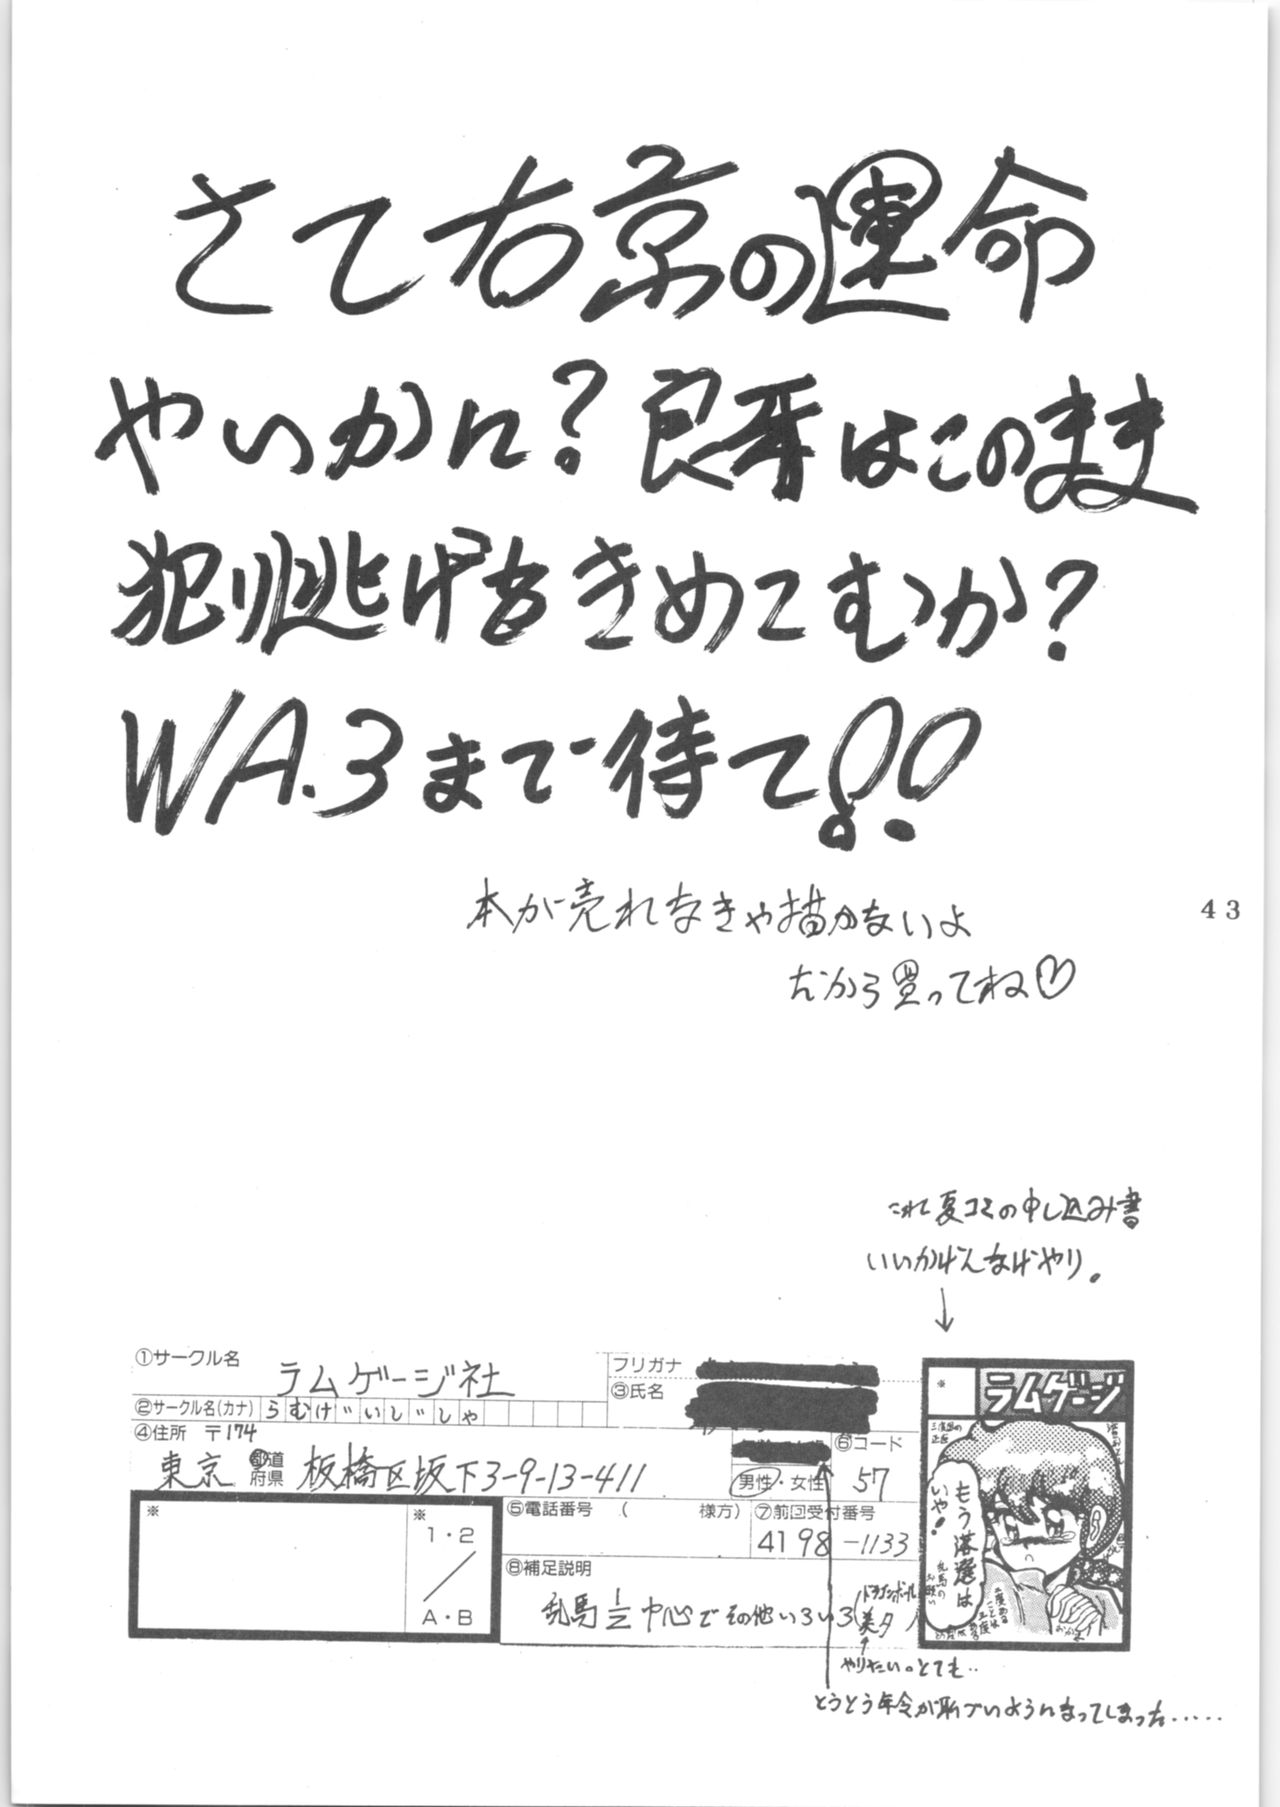 さて右京の運命
やいかに?良牙はこのまま
犯り逃げをきめてむか?
WA.3まで待て!!
本が売れなきゃ描かないよ
だから買ってね♡
43
これ夏コミの申し込み書
いいかげんなげやり。
↓
①サークル名 ラムゲージ社
フリガナ
②サークル名(カナ) らむげいじしゃ
③氏名
④住所 〒174
東京 都道府県 板橋区坂下3-9-13-411
男性・女性
⑥コード 57
※
※
1・2
A・B
⑤電話番号 ( 様方)
⑦前回受付番号
4198-1133
⑧補足説明
乱馬½中心でその他いろいろ(ドラゴンボール 美夕)
やりたい。とても..
とうとう年令が恥づいようになってしまった.....
※
ラムゲージ
三度目の正直
もう落選は
いや!
乱馬のお願い
二度ある
ことは
三度
ある